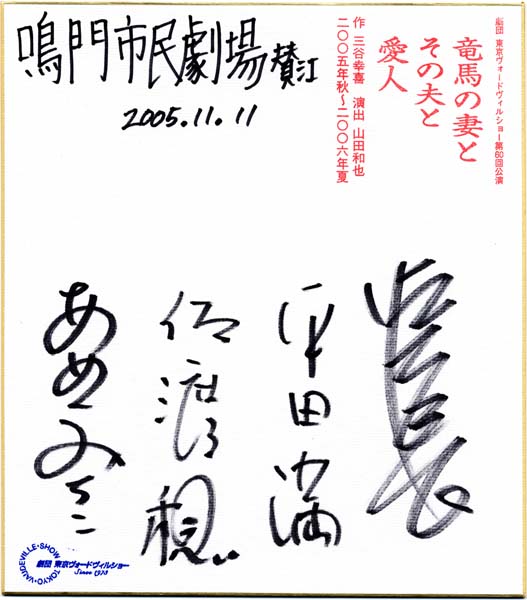 劇団 東京ヴォードヴィルショー第60回公演
竜馬の妻と
その夫と
愛人
作 三谷幸喜 演出 山田和也
二〇〇五年秋〜二〇〇六年夏
鳴門市民劇場賛江
2005.11.11
平田満
佐渡稔
あめくみちこ
TOKYO・VAUDEVILLE・SHOW
劇団 東京ヴォードヴィルショー
Since 1973